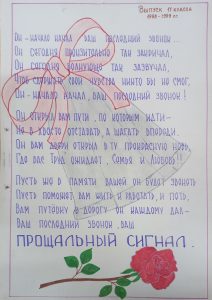 Выпуск 11 класса
1998-1999 гг.
Он - начало начал, ваш последний звонок...
Он сегодня пронзительно так закричал,
Он сегодня волнующе так зазвучал,
Чтоб сдержать свои чувства никто бы не смог,
Он - начало начал, ваш последний звонок!
Он открыл вам пути, по которым идти -
Но в хвосте отставать, а шагать впереди.
Он вам двери открыл в ту прекрасную новь,
Где вас Труд ожидает, Семья и Любовь!
Пусть же в памяти вашей он будет звонить
Пусть поможет вам жить и работать, и петь,
Вам путёвку в дорогу он каждому дал -
Ваш последний звонок, ваш
ПРОЩАЛЬНЫЙ СИГНАЛ.